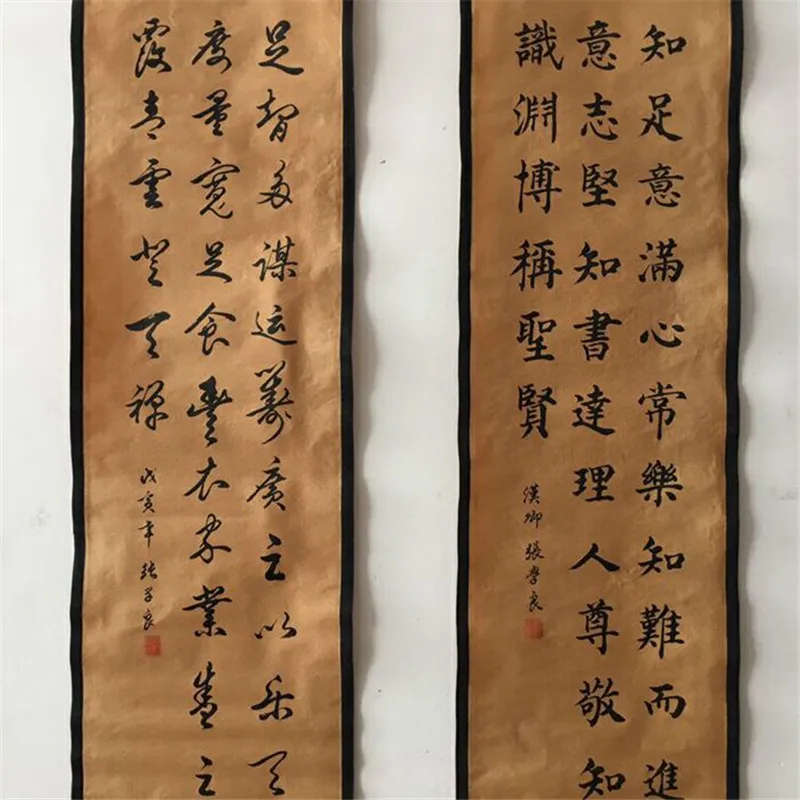 知足意滿心常樂知難而進
意志堅知書達理人尊敬知
識淵博稱聖賢
漢卿 張學良
足智多謀运籌廣之以乐天
度量寬足食豐衣家業盛之
霞青雲登天
戊寅年 张学良